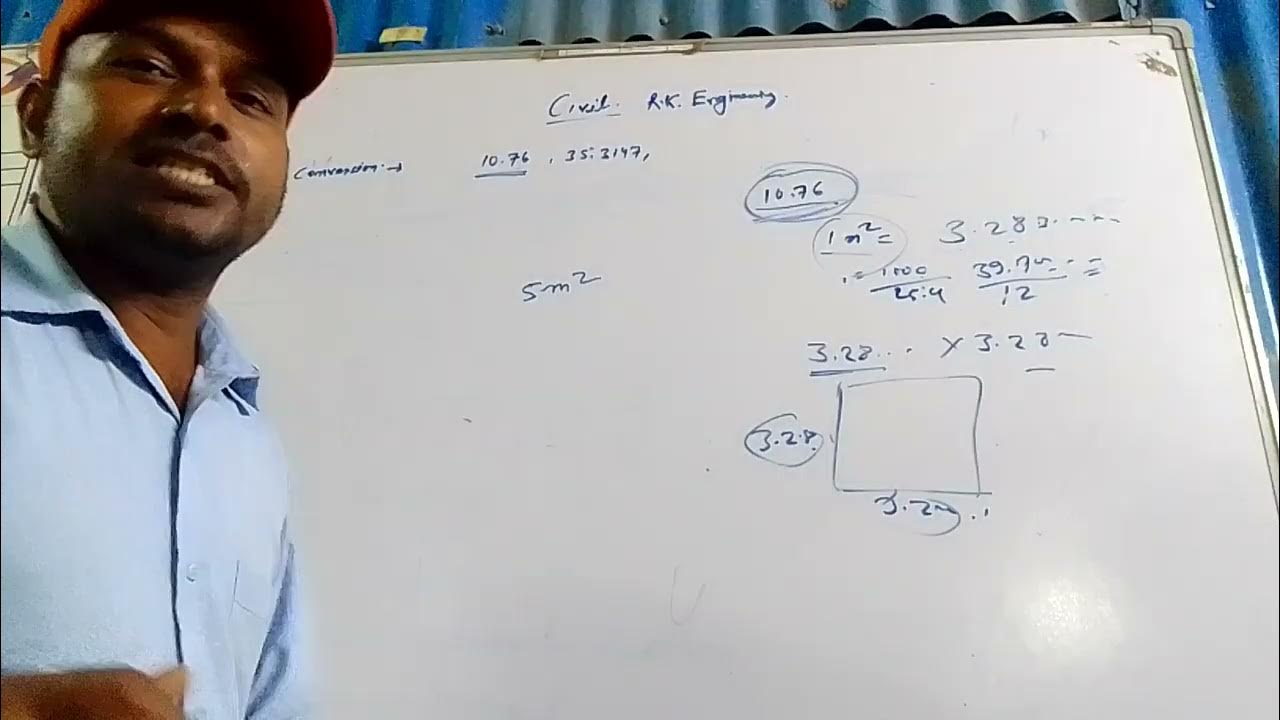 Civil. R.K. Engineering.
Conversion → 10.76, 35.3147,
10.76
1 m² = 3.280......
= 1000/25.4 39.37.../12 =
5m²
3.28... × 3.28
3.28
3.28..